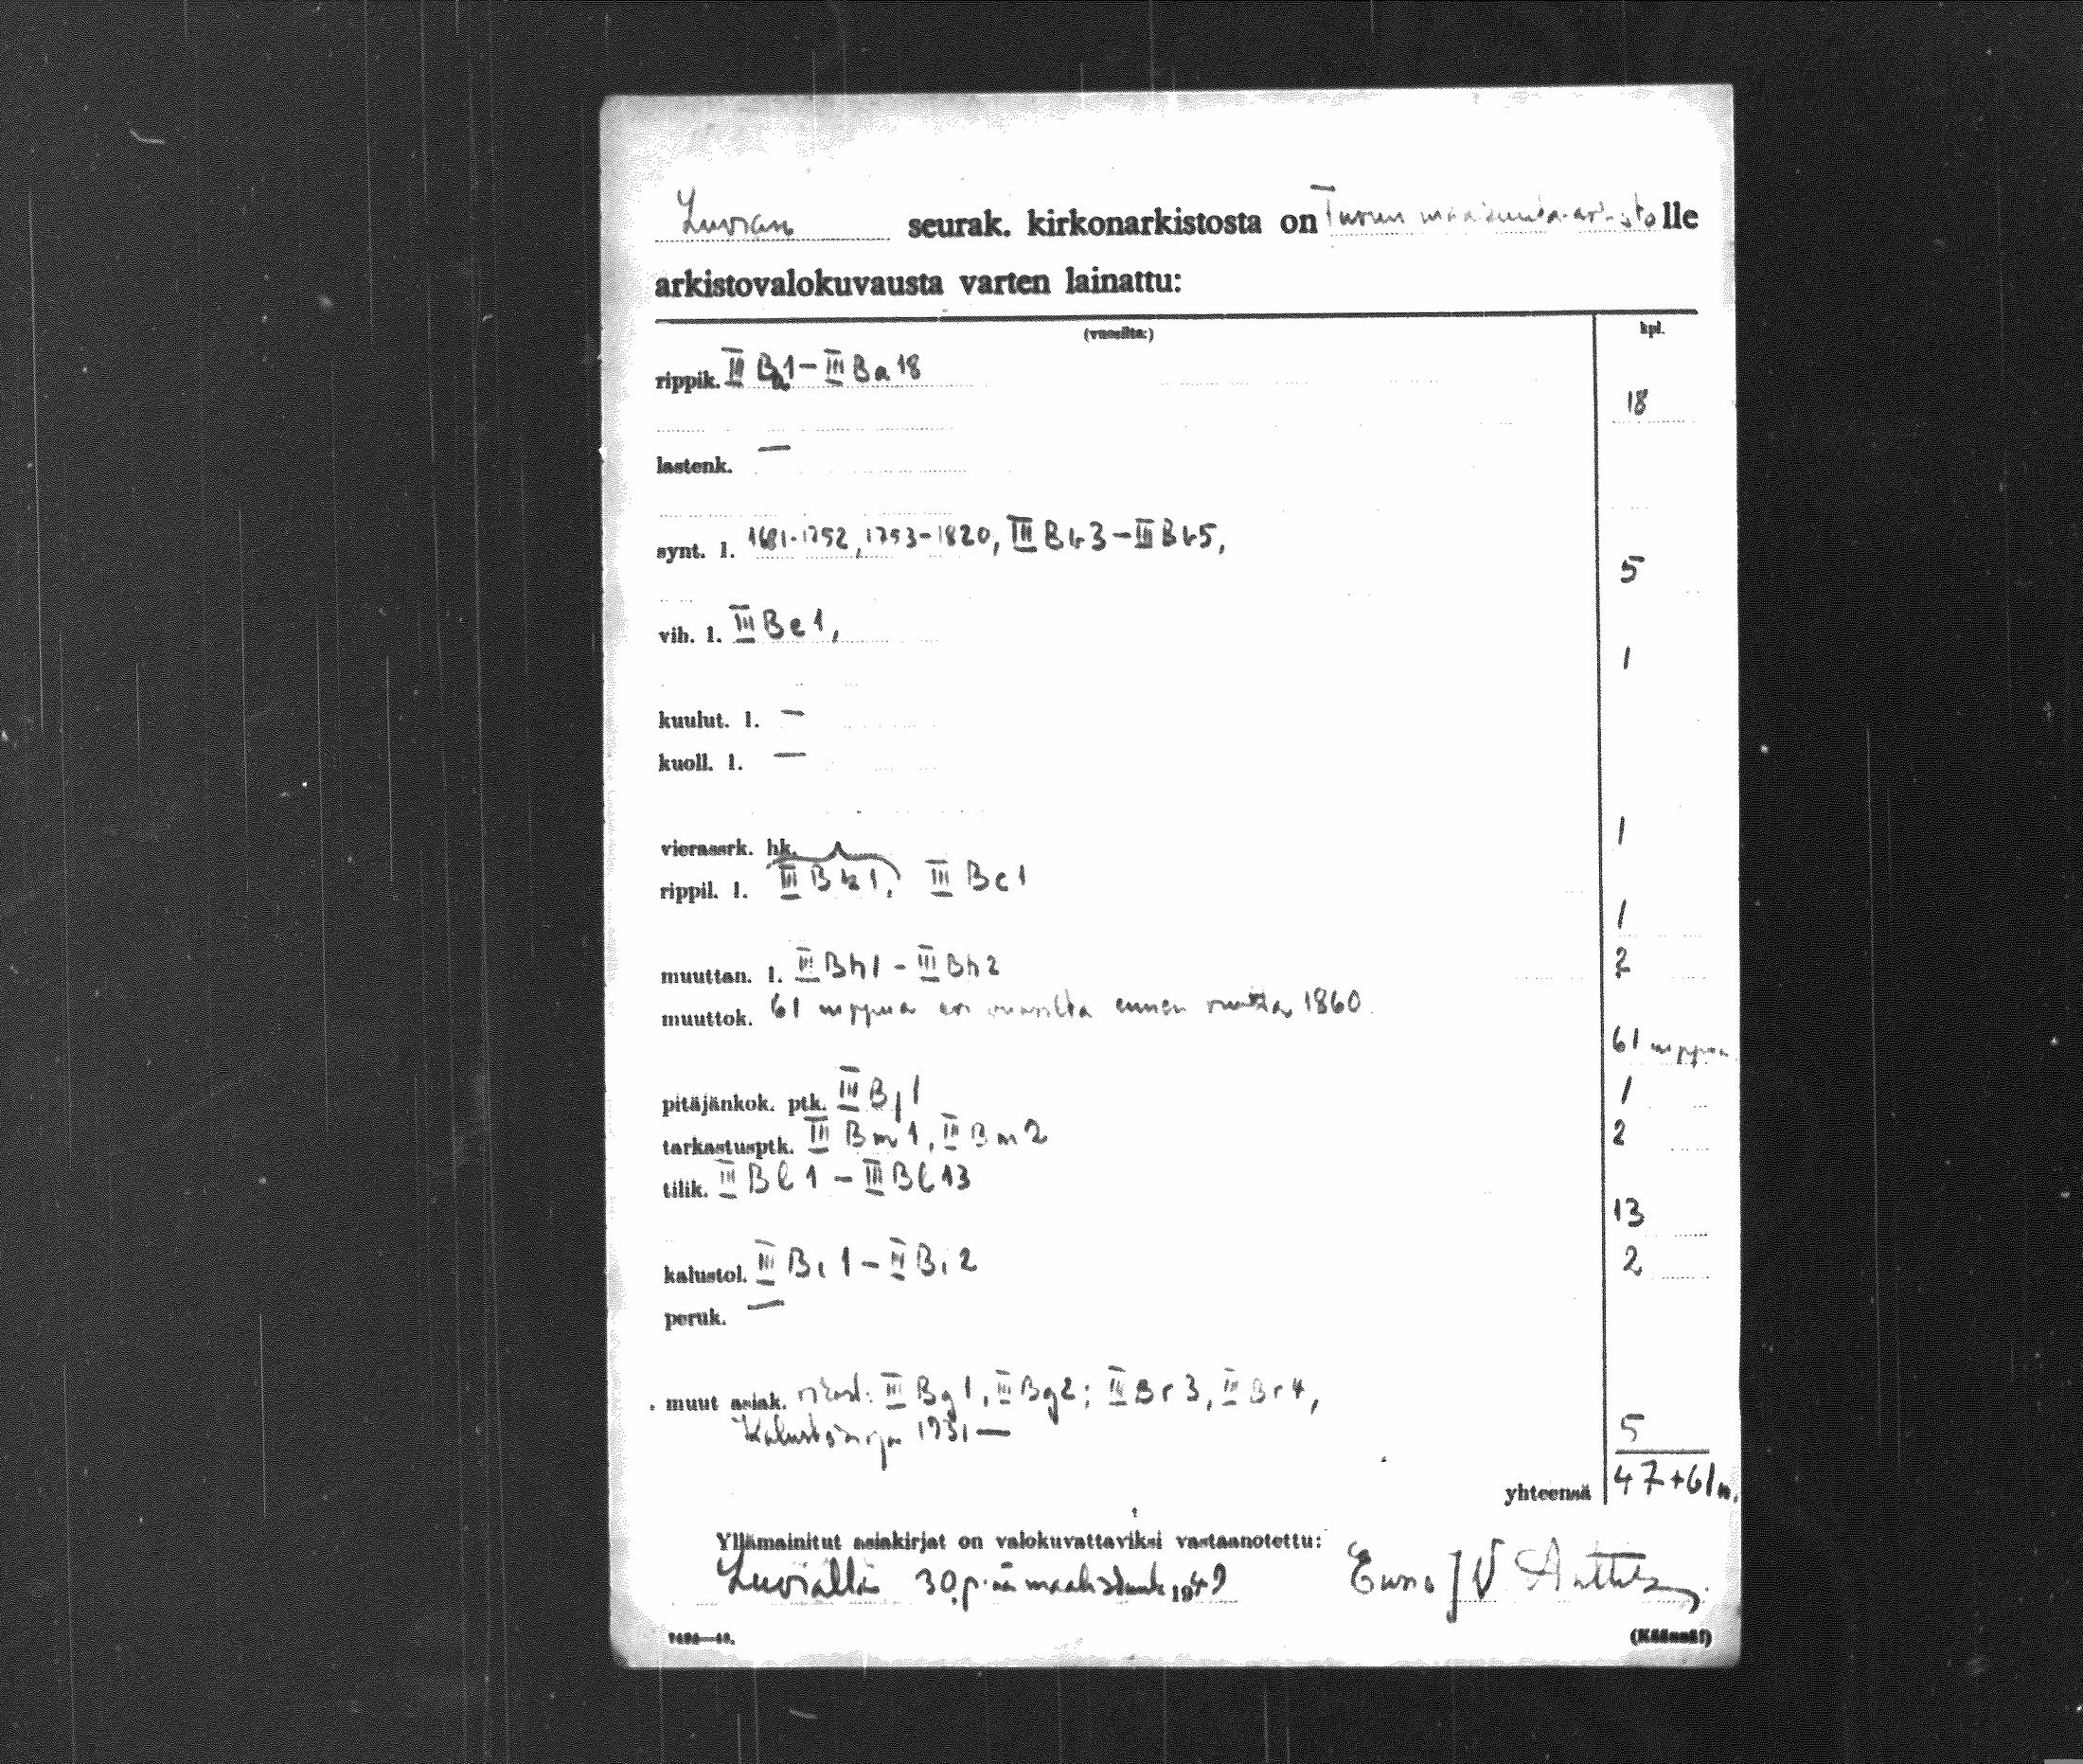 Luvian seurak. kirkonarkistosta on Turun maakunta-arkistolle
arkistovalokuvausta varten lainattu:
(vuosilta:) kpl.
rippik. III Ba1 – III Ba 18
18
lastenk. —
synt. l. 1681-1752, 1753-1820, III Bb3 – III Bb5,
5
vih. l. III Be1,
1
kuulut. l. –
kuoll. l. —
vierassrk. hk. 1
rippil. l. III Bb1, III Bc1
1
muuttan. l. III Bh1 - III Bh2 2
muuttok. 61 nippua eri vuosilta ennen vuotta 1860
61 nippua
pitäjänkok. ptk. III Bj1 1
tarkastusptk. III Bm1, III Bm2 2
tilik. III Bl1 – III Bl13
13
kalustol. III Bi1 – III Bi2 2
peruk. —
muut asiak. III Bg1, III Bg2; III Br3, III Br4,
Kalustokirja 1931 —
5
yhteensä 47+61n.
Yllämainitut asiakirjat on valokuvattaviksi vastaanotettu:
Luvialla 30 p:nä maaliskuuta 1949 J V Anttila
(Käännä!)